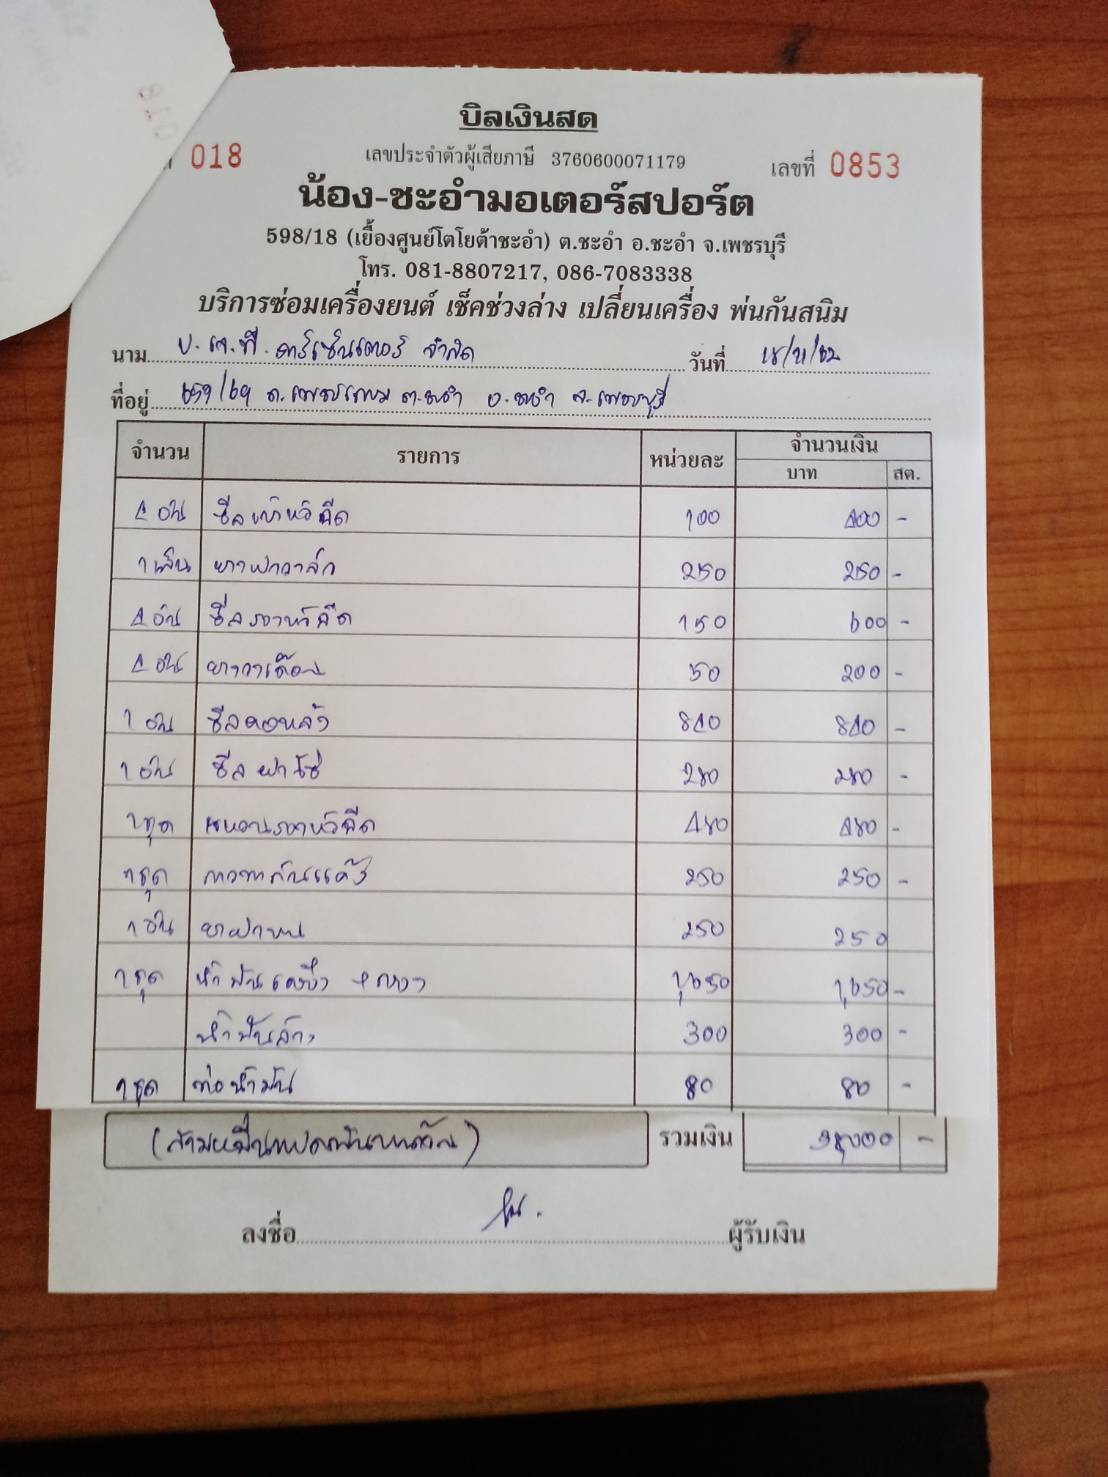 บิลเงินสด
018 เลขประจำตัวผู้เสียภาษี 3760600071179 เลขที่ 0853
น้อง-ชะอำมอเตอร์สปอร์ต
598/18 (เยื้องศูนย์โตโยต้าชะอำ) ต.ชะอำ อ.ชะอำ จ.เพชรบุรี
โทร. 081-8807217, 086-7083338
บริการซ่อมเครื่องยนต์ เช็คช่วงล่าง เปลี่ยนเครื่อง พ่นกันสนิม
นาม บ. เจ.ที. คาร์เซ็นเตอร์ จำกัด วันที่
ที่อยู่ 659/69 ถ.เพชรเกษม ต.ชะอำ อ.ชะอำ จ.เพชรบุรี
จำนวน รายการ หน่วยละ จำนวนเงิน
บาท สต.
4 อัน ซีลเบ้าหัวฉีด 100 400 -
1 เส้น ยางฝาวาล์ว 250 250 -
4 อัน ซีลรองหัวฉีด 150 600 -
4 อัน 50 200 -
1 อัน ซีลคอหลัง 840 840 -
1 อัน ซีลฝาโซ่ 280 280 -
1 ชุด แหวนรองหัวฉีด 480 480 -
1 ชุด กาวทาก้นแค้ง 250 250 -
1 250 250
1 ชุด น้ำมันเครื่อง + กรอง 1,650 1,650 -
น้ำมันล้าง 300 300 -
1 ชุด ท่อน้ำมัน 80 80 -
(สามหมื่นแปดพันบาทถ้วน) รวมเงิน 38,000 -
ลงชื่อ ผู้รับเงิน